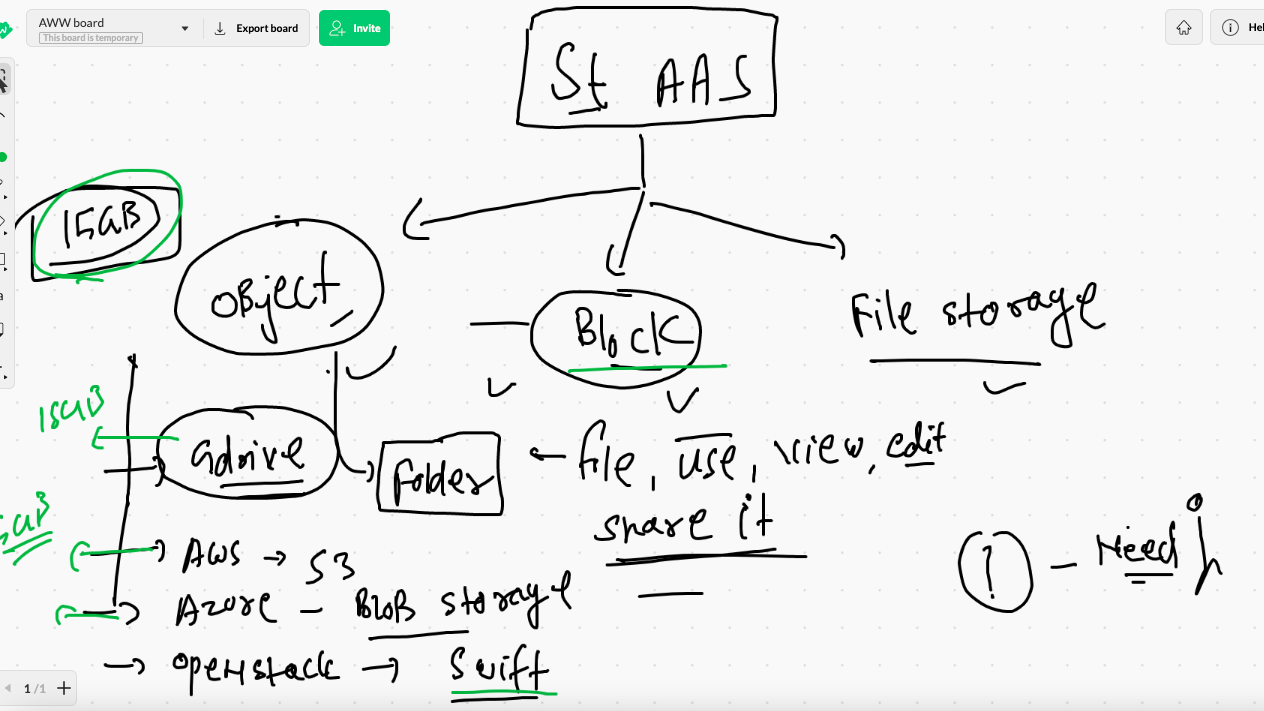 AWW board
This board is temporary
Export board
Invite
Hel
St AAS
15GB
object
Block
File storage
15GB
Gdrive
Folder
file, use, view, edit
share it
AWS → S3
Azure – BloB storage
openstack → Swift
1 – Need
1 /1